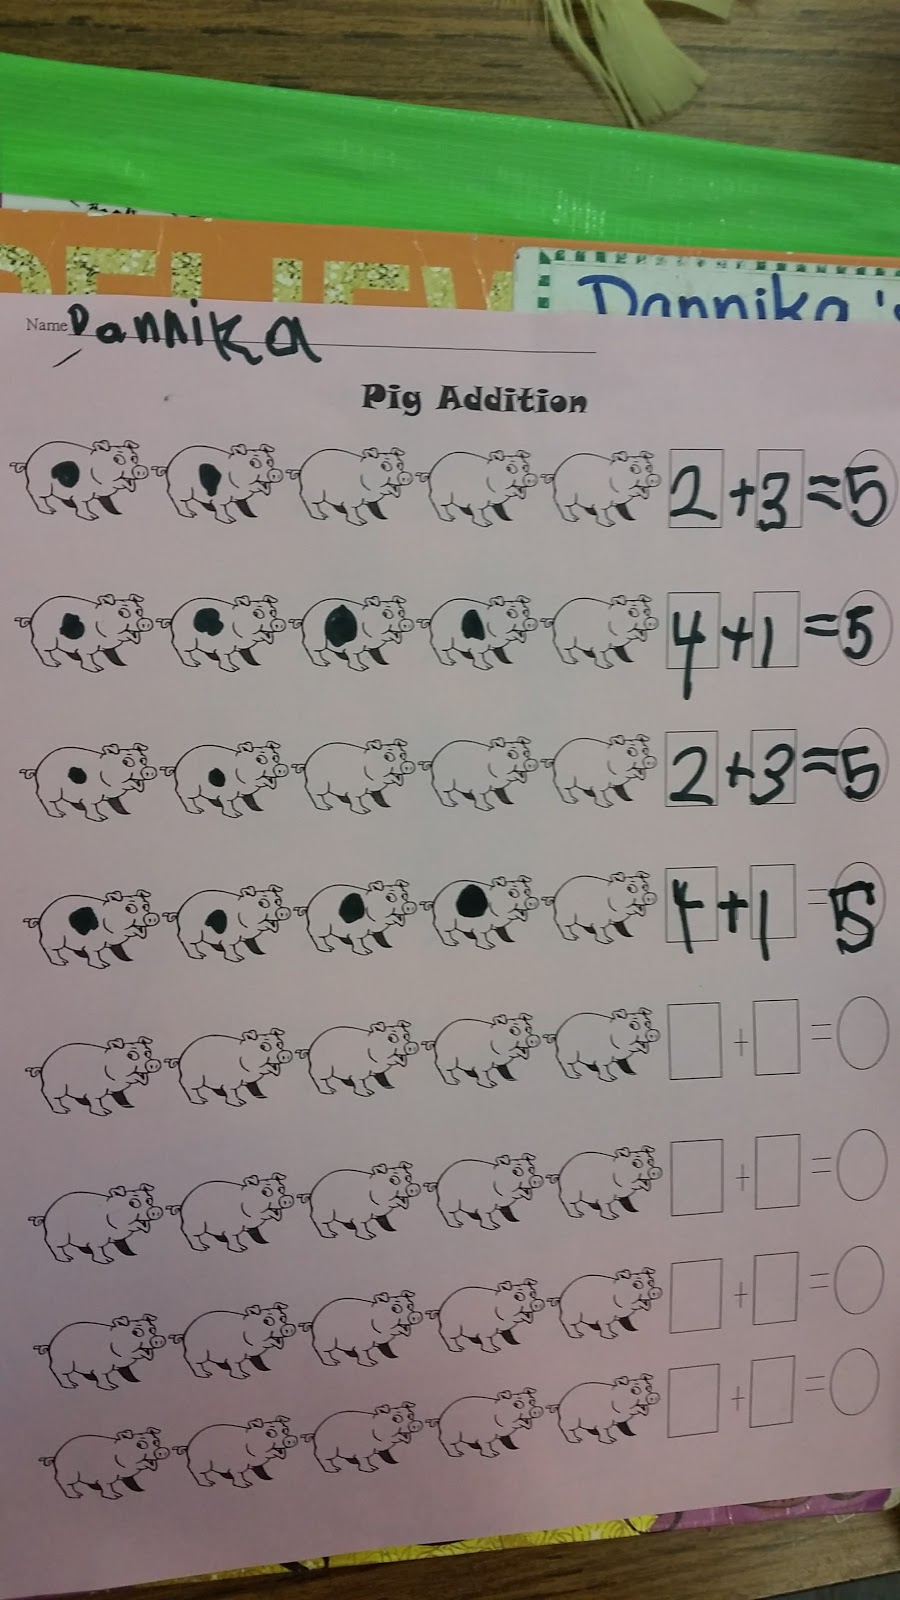 Dannika's
Name Dannika
Pig Addition
2 + 3 = 5
4 + 1 = 5
2 + 3 = 5
4 + 1 = 5
+ =
+ =
+ =
+ =